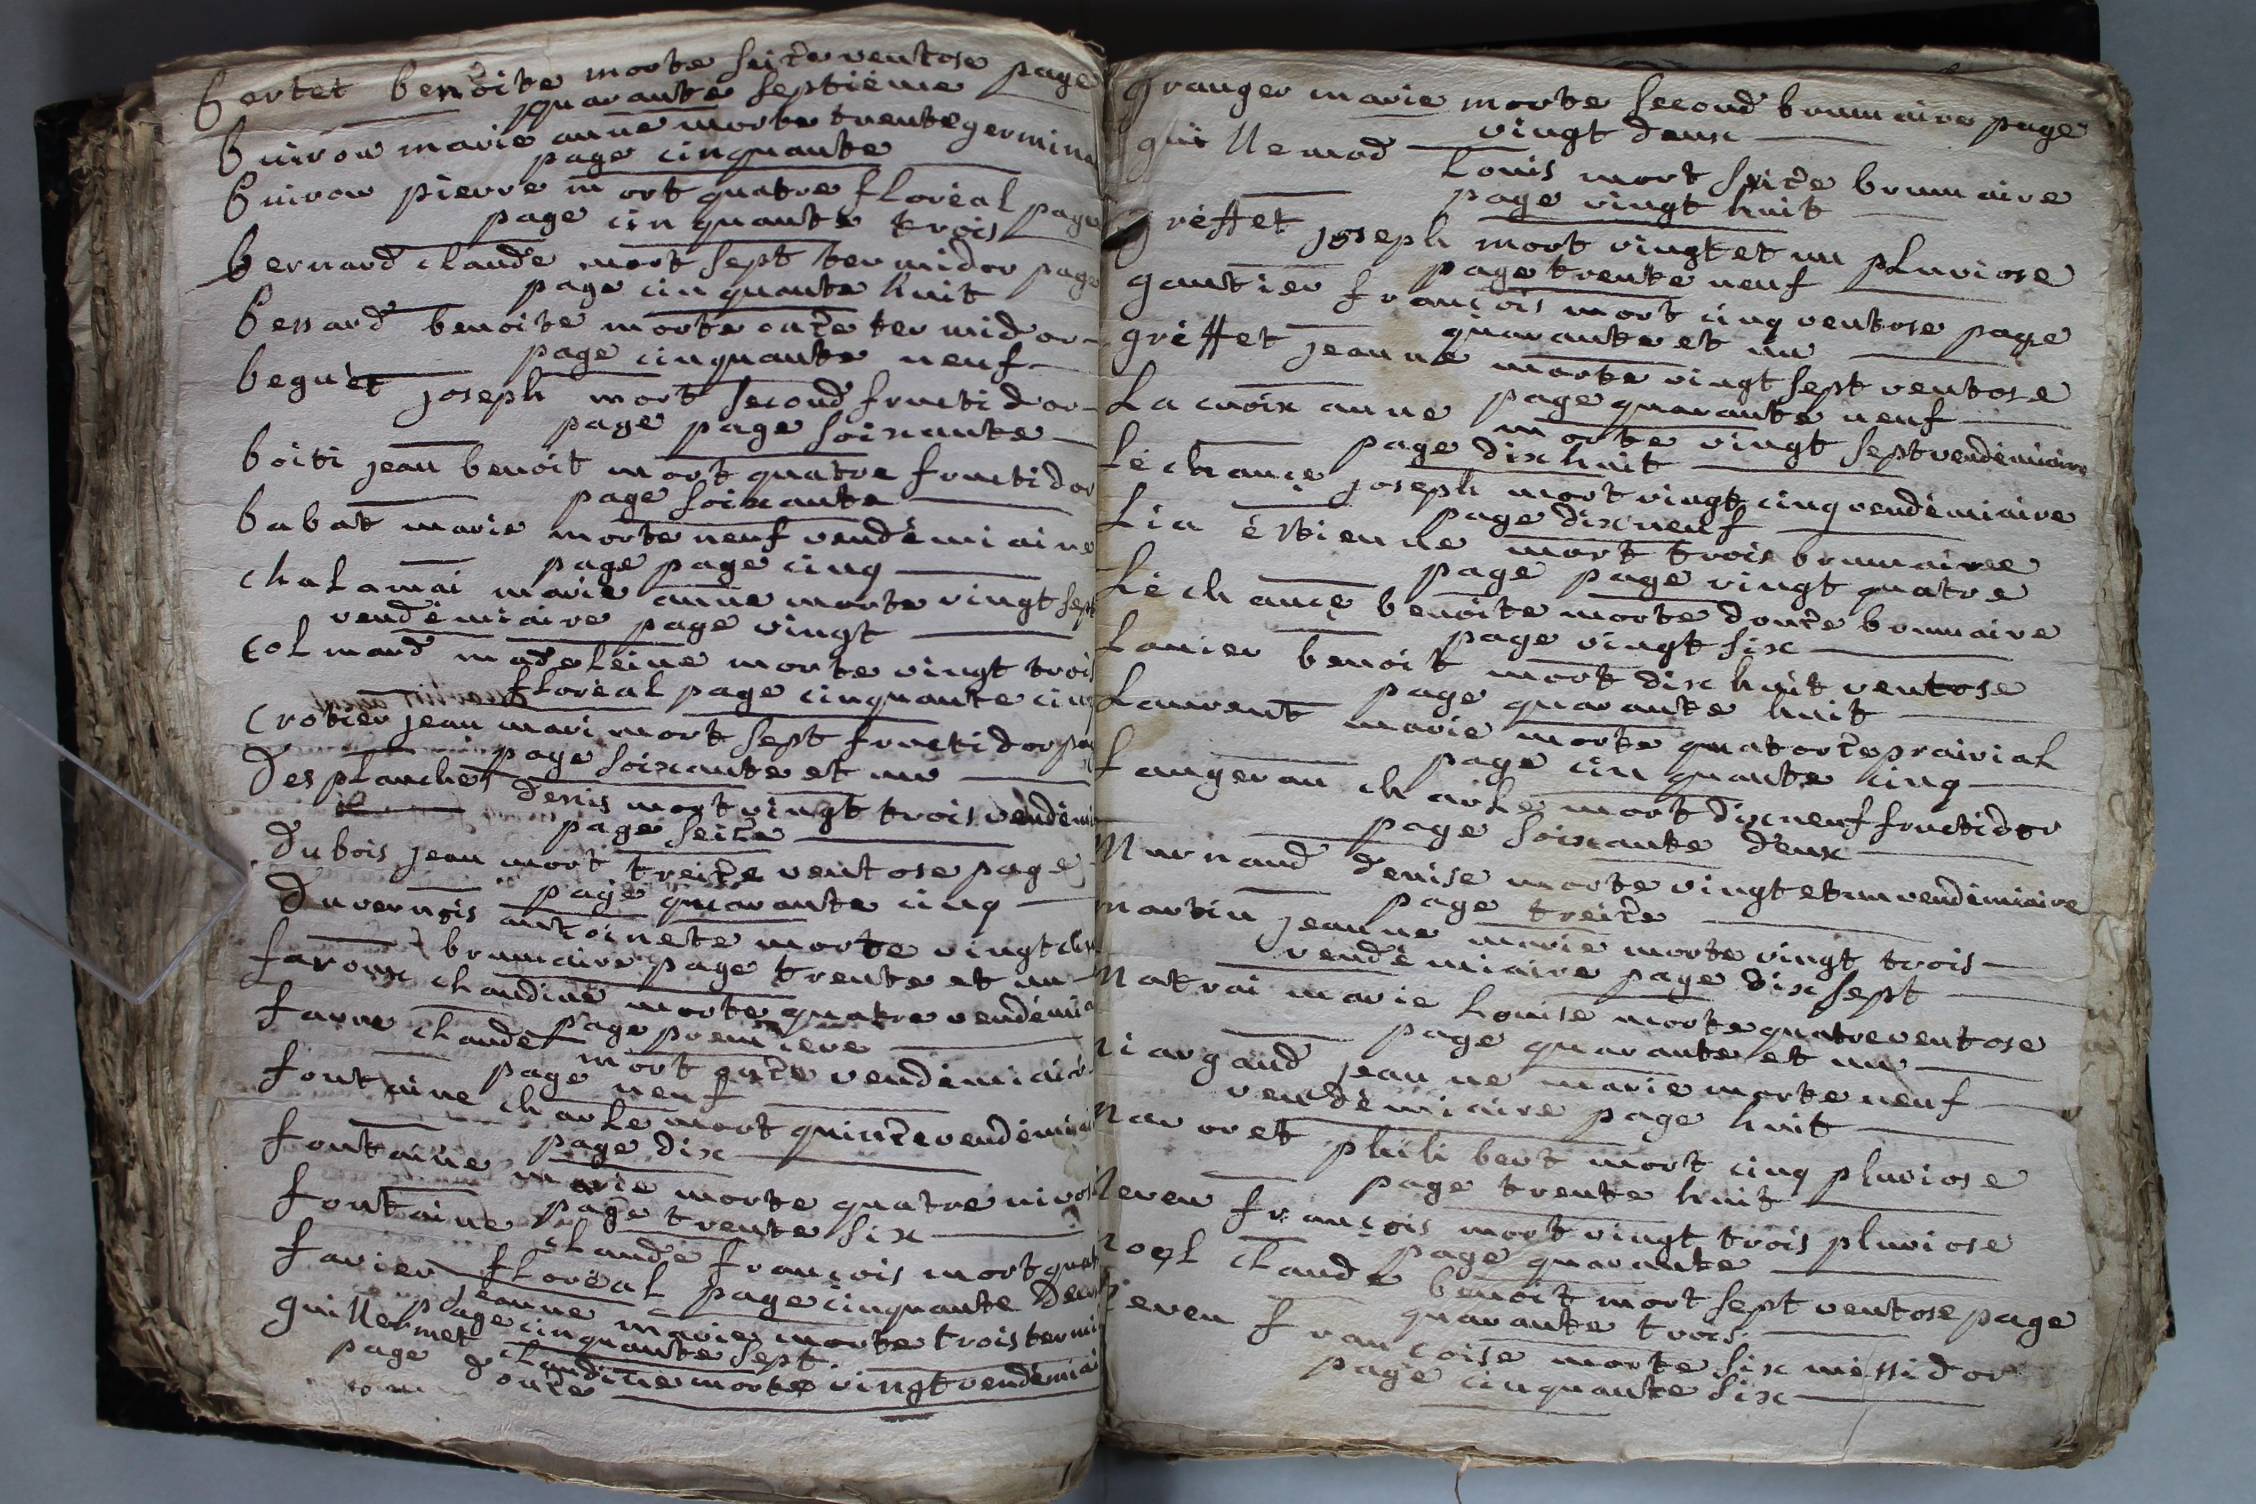 bertet benoite morte seize ventose page
quarante septième
buiron marie anne morte trente germina
page cinquante
buiron pierre mort quatre floréal page
page cinquante trois
bernard claude mort sept termidor page
page cinquante huit
bessard benoite morte onze termidor
page cinquante neuf
beguet joseph mort second fructidor
page page soixante
boiti jean benoit mort quatre fructidor
page soixante
babat marie morte neuf vendémiaire
page page cinq
chalamai marie anne morte vingt sept
vendémiaire page vingt
colmard madeleine morte vingt trois
floréal page cinquante cinq
crotier jean mari mort sept fructidor pag
page soixante et un
Desplanche denis mort vingt trois vendemi
page seize
Dubois jean mort treize ventose page
page quarante cinq
Duvernois antoinete morte vingt
brumaire page trente et un
faroux claudine morte quatre vendémia
page premiere
farne claude mort onze vendémiair
page neuf
fontaine charle mort quinze vendémiai
page dix
fontaine marie morte quatre nivos
page trente six
fontaine claude françois mort quat
floréal page cinquante deux
favier jeanne marie morte trois termi
page cinquante sept
guillermet claudine morte vingt vendémiai
page douze
granger marie morte second brumaire page
vingt deux
guillemod louis mort seize brumaire
page vingt huit
griffet joseph mort vingt et un pluviose
page trente neuf
gautier françois mort cinq ventose page
quarante et un
griffet jeanne morte vingt sept ventose
page quarante neuf
La croix anne morte vingt sept vendémiaire
page dix huit
Léchançe joseph mort vingt cinq vendémiaire
page dix neuf
Lia étienne mort trois brumairee
page page vingt quatre
Léchançe benoite morte douze brumaire
page vingt six
Lanier benoit mort dix huit ventose
page quarante huit
Laurent marie morte quatorze prairial
page cinquante cinq
Langeran charle mort dix neuf fructidor
page soixante deux
Murnand denise morte vingt et un vendémiaire
page treize
martin jeanne marie morte vingt trois
vendémiaire page dix sept
Natrai marie louise morte quatre ventose
page quarante et un
niargaud jeanne marie morte neuf
vendémiaire page huit
navoret philibert mort cinq pluviose
page trente huit
neven françois mort vingt trois pluviose
page quarante
noel claude benoit mort sept ventose page
quarante trois
neven françoise morte six messidor
page cinquante six